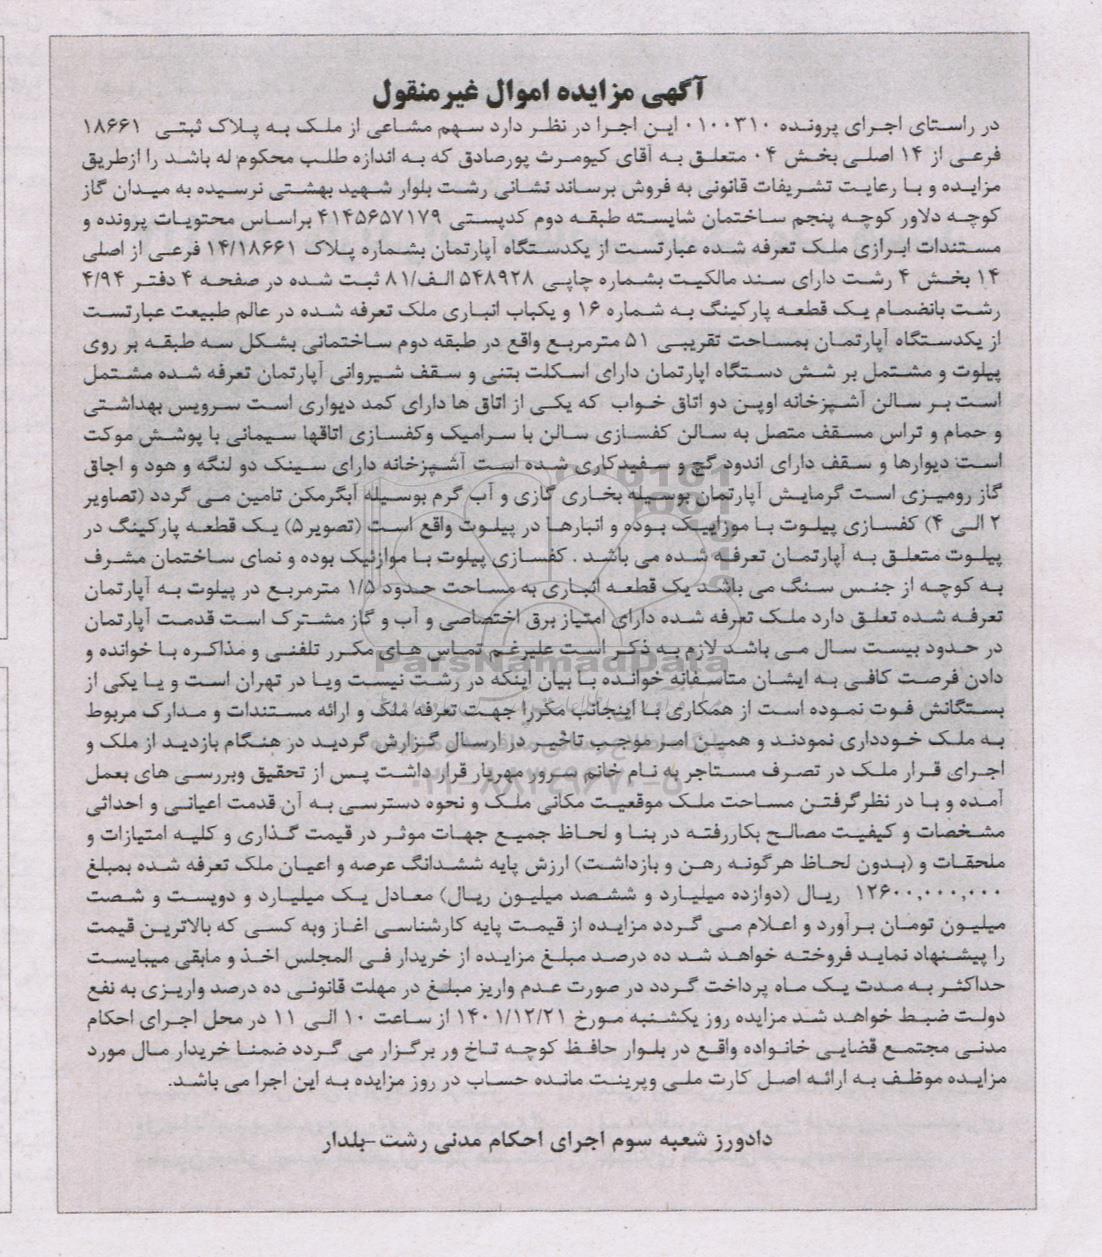 آگهی مزایده اموال غیرمنقول
در راستای اجرای پرونده ۰۱۰۰۳۱۰ این اجرا در نظر دارد سهم مشاعی از ملک به پلاک ثبتی ۱۸۶۶۱
فرعی از ۱۴ اصلی بخش ۰۴ متعلق به آقای کیومرث پورصادق که به اندازه طلب محکوم له باشد را ازطریق
مزایده و با رعایت تشریفات قانونی به فروش برساند نشانی رشت بلوار شهید بهشتی نرسیده به میدان گاز
کوچه دلاور کوچه پنجم ساختمان شایسته طبقه دوم کدپستی ۴۱۴۵۶۵۷۱۷۹ براساس محتویات پرونده و
مستندات ابرازی ملک تعرفه شده عبارتست از یکدستگاه آپارتمان بشماره پلاک ۱۴/۱۸۶۶۱ فرعی از اصلی
۱۴ بخش ۴ رشت دارای سند مالکیت بشماره چاپی ۵۴۸۹۲۸ الف/۸۱ ثبت شده در صفحه ۴ دفتر ۴/۹۴
رشت بانضمام یک قطعه پارکینگ به شماره ۱۶ و یکباب انباری ملک تعرفه شده در عالم طبیعت عبارتست
از یکدستگاه آپارتمان بمساحت تقریبی ۵۱ مترمربع واقع در طبقه دوم ساختمانی بشکل سه طبقه بر روی
پیلوت و مشتمل بر شش دستگاه اپارتمان دارای اسکلت بتنی و سقف شیروانی آپارتمان تعرفه شده مشتمل
است بر سالن آشپزخانه اوپن دو اتاق خواب که یکی از اتاق ها دارای کمد دیواری است سرویس بهداشتی
و حمام و تراس مسقف متصل به سالن کفسازی سالن با سرامیک وکفسازی اتاقها سیمانی با پوشش موکت
است دیوارها و سقف دارای اندود گچ و سفیدکاری شده است آشپزخانه دارای سینک دو لنگه و هود و اجاق
گاز رومیزی است گرمایش آپارتمان بوسیله بخاری گازی و آب گرم بوسیله آبگرمکن تامین می گردد (تصاویر
۲ الی ۴) کفسازی پیلوت با موزاییک بوده و انبارها در پیلوت واقع است (تصویر۵) یک قطعه پارکینگ در
پیلوت متعلق به آپارتمان تعرفه شده می باشد . کفسازی پیلوت با موازئیک بوده و نمای ساختمان مشرف
به کوچه از جنس سنگ می باشد یک قطعه انباری به مساحت حدود ۱/۵ مترمربع در پیلوت به آپارتمان
تعرفه شده تعلق دارد ملک تعرفه شده دارای امتیاز برق اختصاصی و آب و گاز مشترک است قدمت آپارتمان
در حدود بیست سال می باشد لازم به ذکر است علیرغم تماس های مکرر تلفنی و مذاکره با خوانده و
دادن فرصت کافی به ایشان متاسفانه خوانده با بیان اینکه در رشت نیست ویا در تهران است و یا یکی از
بستگانش فوت نموده است از همکاری با اینجانب مکررا جهت تعرفه ملک و ارائه مستندات و مدارک مربوط
به ملک خودداری نمودند و همین امر موجب تاخیر در ارسال گزارش گردید در هنگام بازدید از ملک و
اجرای قرار ملک در تصرف مستاجر به نام خانم سرور مهریار قرار داشت پس از تحقیق وبررسی های بعمل
آمده و با در نظرگرفتن مساحت ملک موقعیت مکانی ملک و نحوه دسترسی به آن قدمت اعیانی و احداثی
مشخصات و کیفیت مصالح بکاررفته در بنا و لحاظ جمیع جهات موثر در قیمت گذاری و کلیه امتیازات و
ملحقات و (بدون لحاظ هرگونه رهن و بازداشت) ارزش پایه ششدانگ عرصه و اعیان ملک تعرفه شده بمبلغ
۱۲۶۰۰,۰۰۰,۰۰۰ ریال (دوازده میلیارد و ششصد میلیون ریال) معادل یک میلیارد و دویست و شصت
میلیون تومان برآورد و اعلام می گردد مزایده از قیمت پایه کارشناسی اغاز وبه کسی که بالاترین قیمت
را پیشنهاد نماید فروخته خواهد شد ده درصد مبلغ مزایده از خریدار فی المجلس اخذ و مابقی میبایست
حداکثر به مدت یک ماه پرداخت گردد در صورت عدم واریز مبلغ در مهلت قانونی ده درصد واریزی به نفع
دولت ضبط خواهد شد مزایده روز یکشنبه مورخ ۱۴۰۱/۱۲/۲۱ از ساعت ۱۰ الی ۱۱ در محل اجرای احکام
مدنی مجتمع قضایی خانواده واقع در بلوار حافظ کوچه تاخ ور برگزار می گردد ضمنا خریدار مال مورد
مزایده موظف به ارائه اصل کارت ملی وپرینت مانده حساب در روز مزایده به این اجرا می باشد.
دادورز شعبه سوم اجرای احکام مدنی رشت-بلدار
ParsNamadData